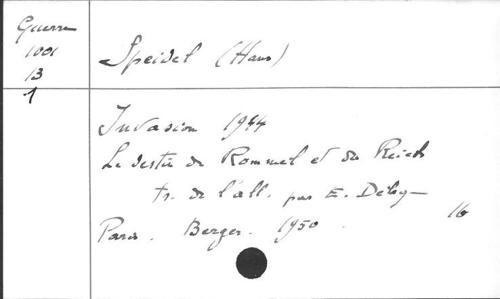 Guerre
1001
13
1
Speidel (Hans)
Invasion 1944
Le destin de Rommel et du Reich
tr. de l'all. par E. Delay
Paris. Berger. 1950.
16